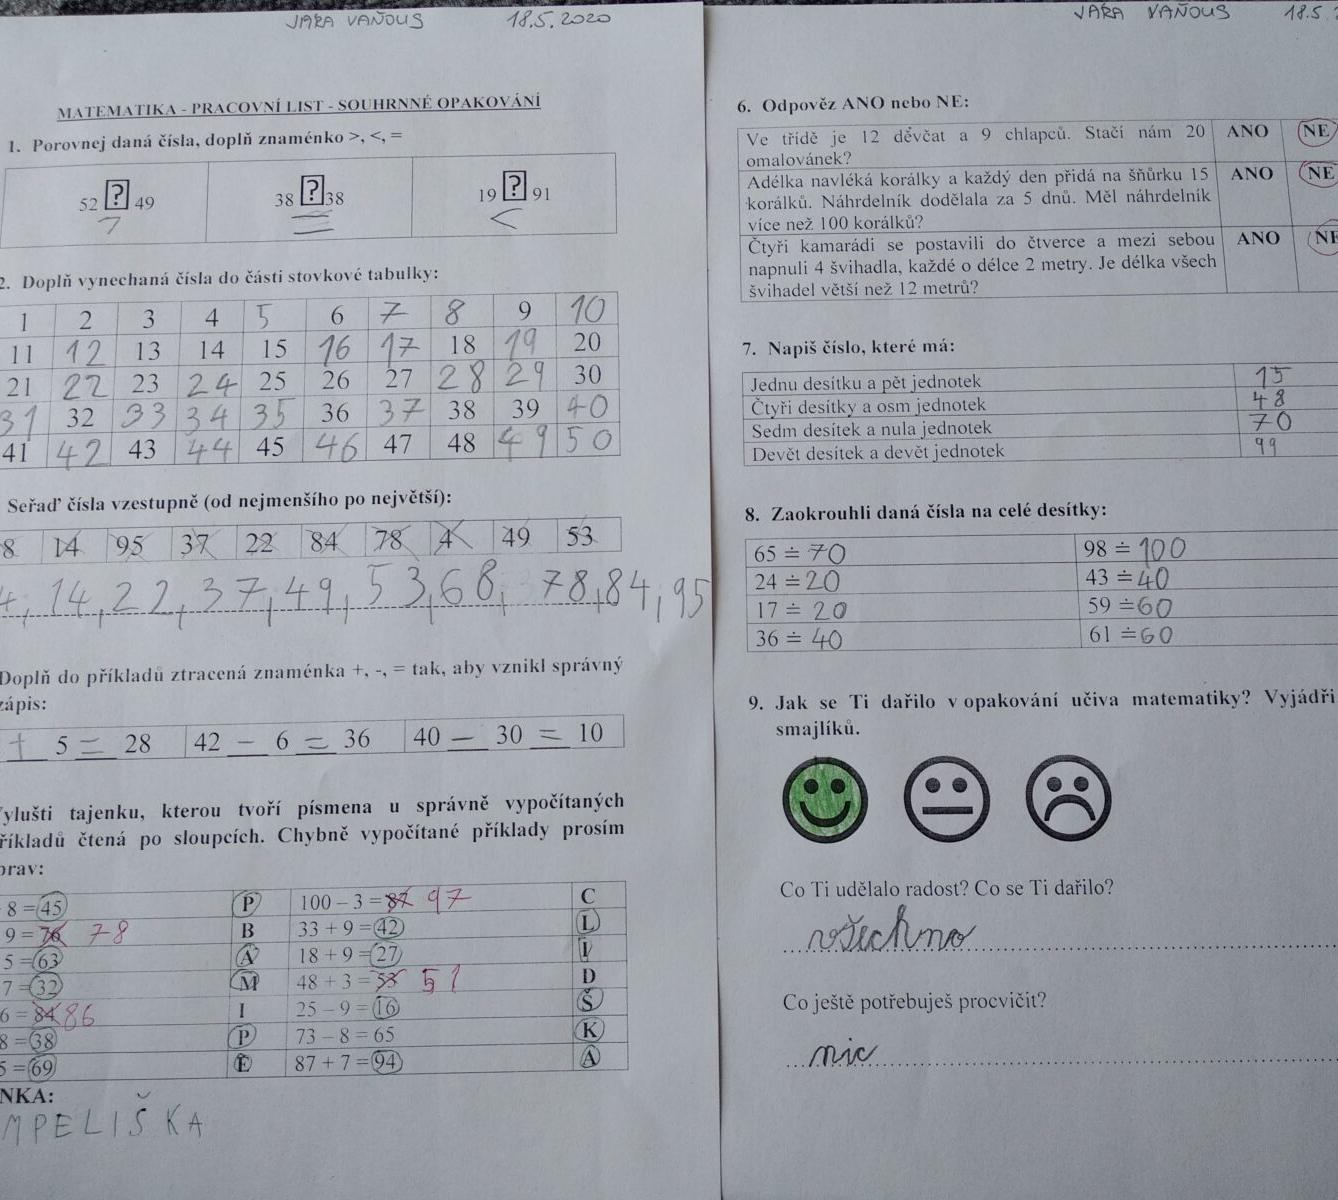 JARA VAŇOUS 18.5.2020
MATEMATIKA - PRACOVNÍ LIST - SOUHRNNÉ OPAKOVÁNÍ
1. Porovnej daná čísla, doplň znaménko >, <, =
52 ? 49 38 ? 38 19 ? 91
> = <
2. Doplň vynechaná čísla do části stovkové tabulky:
1 2 3 4 5 6 7 8 9 10
11 12 13 14 15 16 17 18 19 20
21 22 23 24 25 26 27 28 29 30
31 32 33 34 35 36 37 38 39 40
41 42 43 44 45 46 47 48 49 50
Seřaď čísla vzestupně (od nejmenšího po největší):
8 14 95 37 22 84 78 4 49 53
4, 14, 22, 37, 49, 53, 68, 78, 84, 95
Doplň do příkladů ztracená znaménka +, -, = tak, aby vznikl správný
zápis:
+ 5 = 28 42 - 6 = 36 40 - 30 = 10
Vylušti tajenku, kterou tvoří písmena u správně vypočítaných
říkladů čtená po sloupcích. Chybně vypočítané příklady prosím
prav:
8 = 45 P 100 – 3 = 87 97 C
9 = 76 78 B 33 + 9 = 42 L
5 = 63 A 18 + 9 = 27 I
7 = 32 M 48 + 3 = 53 51 D
6 = 84 86 I 25 – 9 = 16 Š
8 = 38 P 73 – 8 = 65 K
5 = 69 E 87 + 7 = 94 A
NKA:
MPELIŠKA
JARA VAŇOUS 18.5
6. Odpověz ANO nebo NE:
Ve třídě je 12 děvčat a 9 chlapců. Stačí nám 20 ANO NE
omalovánek?
Adélka navléká korálky a každý den přidá na šňůrku 15 ANO NE
korálků. Náhrdelník dodělala za 5 dnů. Měl náhrdelník
více než 100 korálků?
Čtyři kamarádi se postavili do čtverce a mezi sebou ANO NE
napnuli 4 švihadla, každé o délce 2 metry. Je délka všech
švihadel větší než 12 metrů?
7. Napiš číslo, které má:
Jednu desítku a pět jednotek 15
Čtyři desítky a osm jednotek 48
Sedm desítek a nula jednotek 70
Devět desítek a devět jednotek 99
8. Zaokrouhli daná čísla na celé desítky:
65 ≐ 70 98 ≐ 100
24 ≐ 20 43 ≐ 40
17 ≐ 20 59 ≐ 60
36 ≐ 40 61 ≐ 60
9. Jak se Ti dařilo v opakování učiva matematiky? Vyjádři
smajlíků.
Co Ti udělalo radost? Co se Ti dařilo?
všechno
Co ještě potřebuješ procvičit?
nic